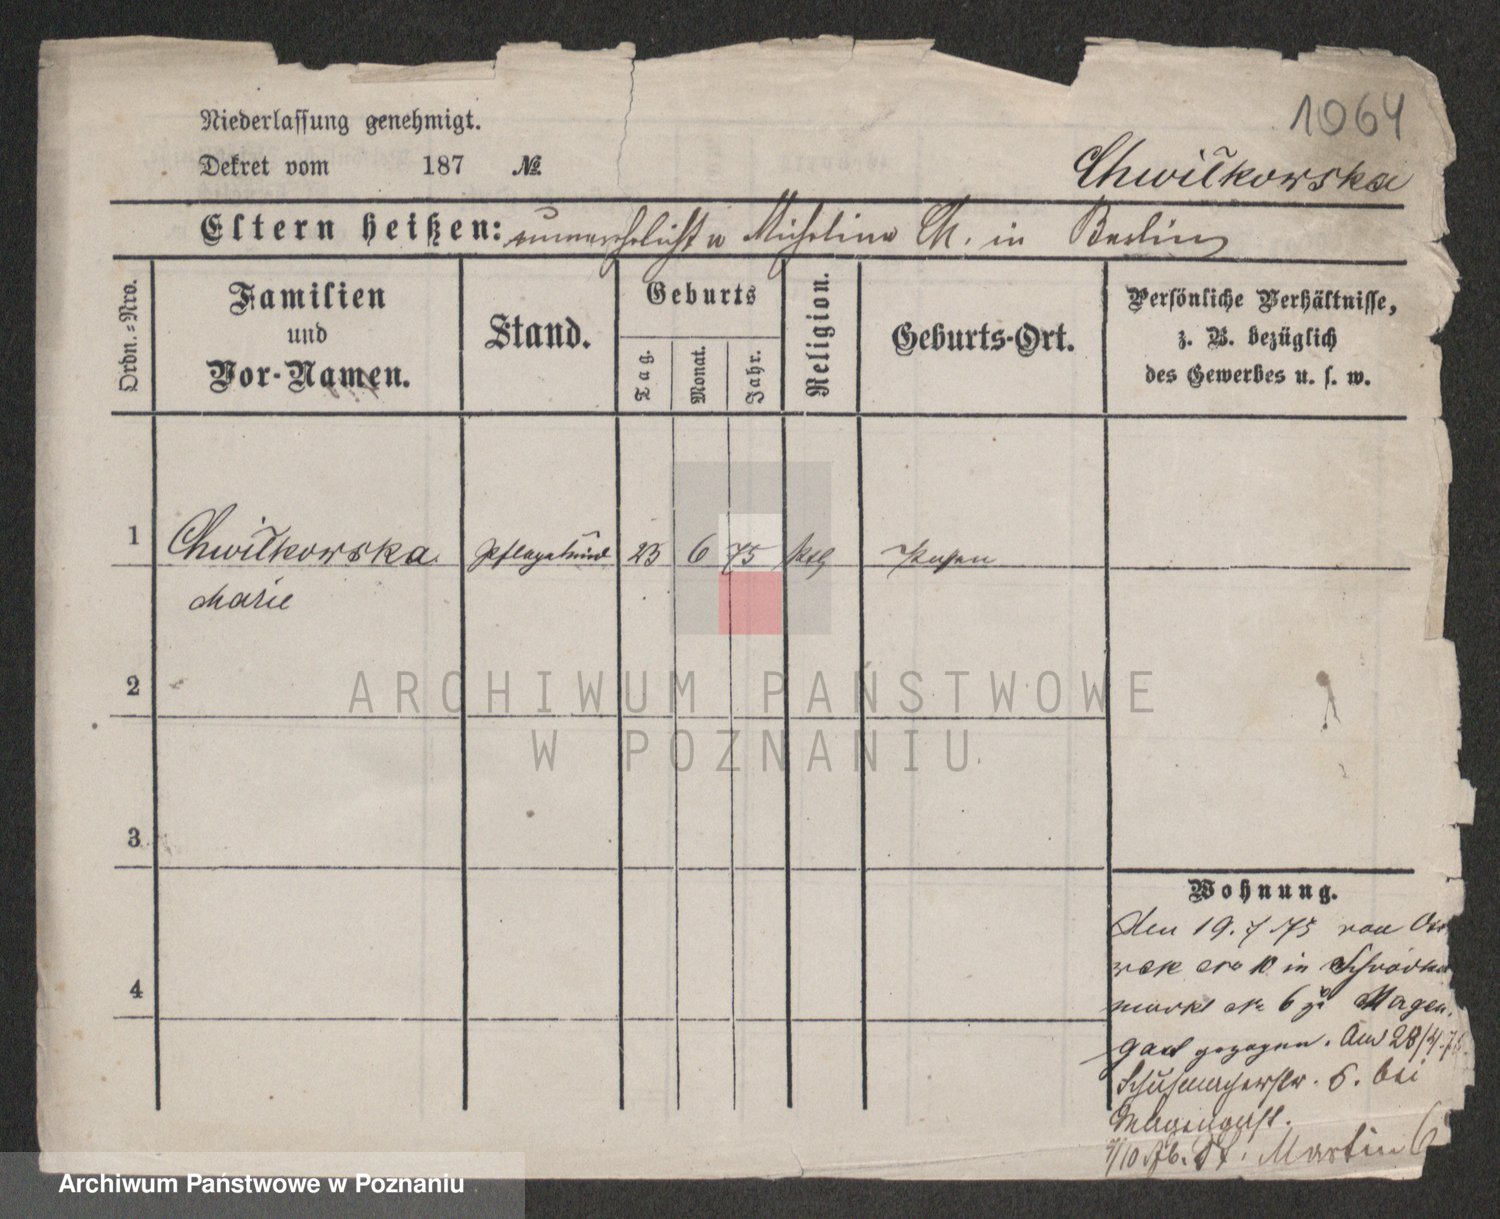 1064
Niederlassung genehmigt.
Dekret vom 187 №
Chwiłkowska
Eltern heißen: unverehelicht u Michalina Ch. in Berlin
Ordn.-Nro.
Familien
und
Vor-Namen.
Stand.
Geburts
Tag.
Monat.
Jahr.
Religion.
Geburts-Ort.
Persönliche Verhältnisse,
z. B. bezüglich
des Gewerbes u. s. w.
1 Chwiłkowska Pflegekind 23 6 75 kth Posen
Marie
2
ARCHIWUM PAŃSTWOWE
W POZNANIU
3
Wohnung.
Den 19. 7 75 von
in Schrodka
markt № 6 zu Magen
gast gezogen. Am 28/4. 76
Schuhmacherstr. 6. bei
Magengast.
4
7/10 76. St. Martin 6
Archiwum Państwowe w Poznaniu